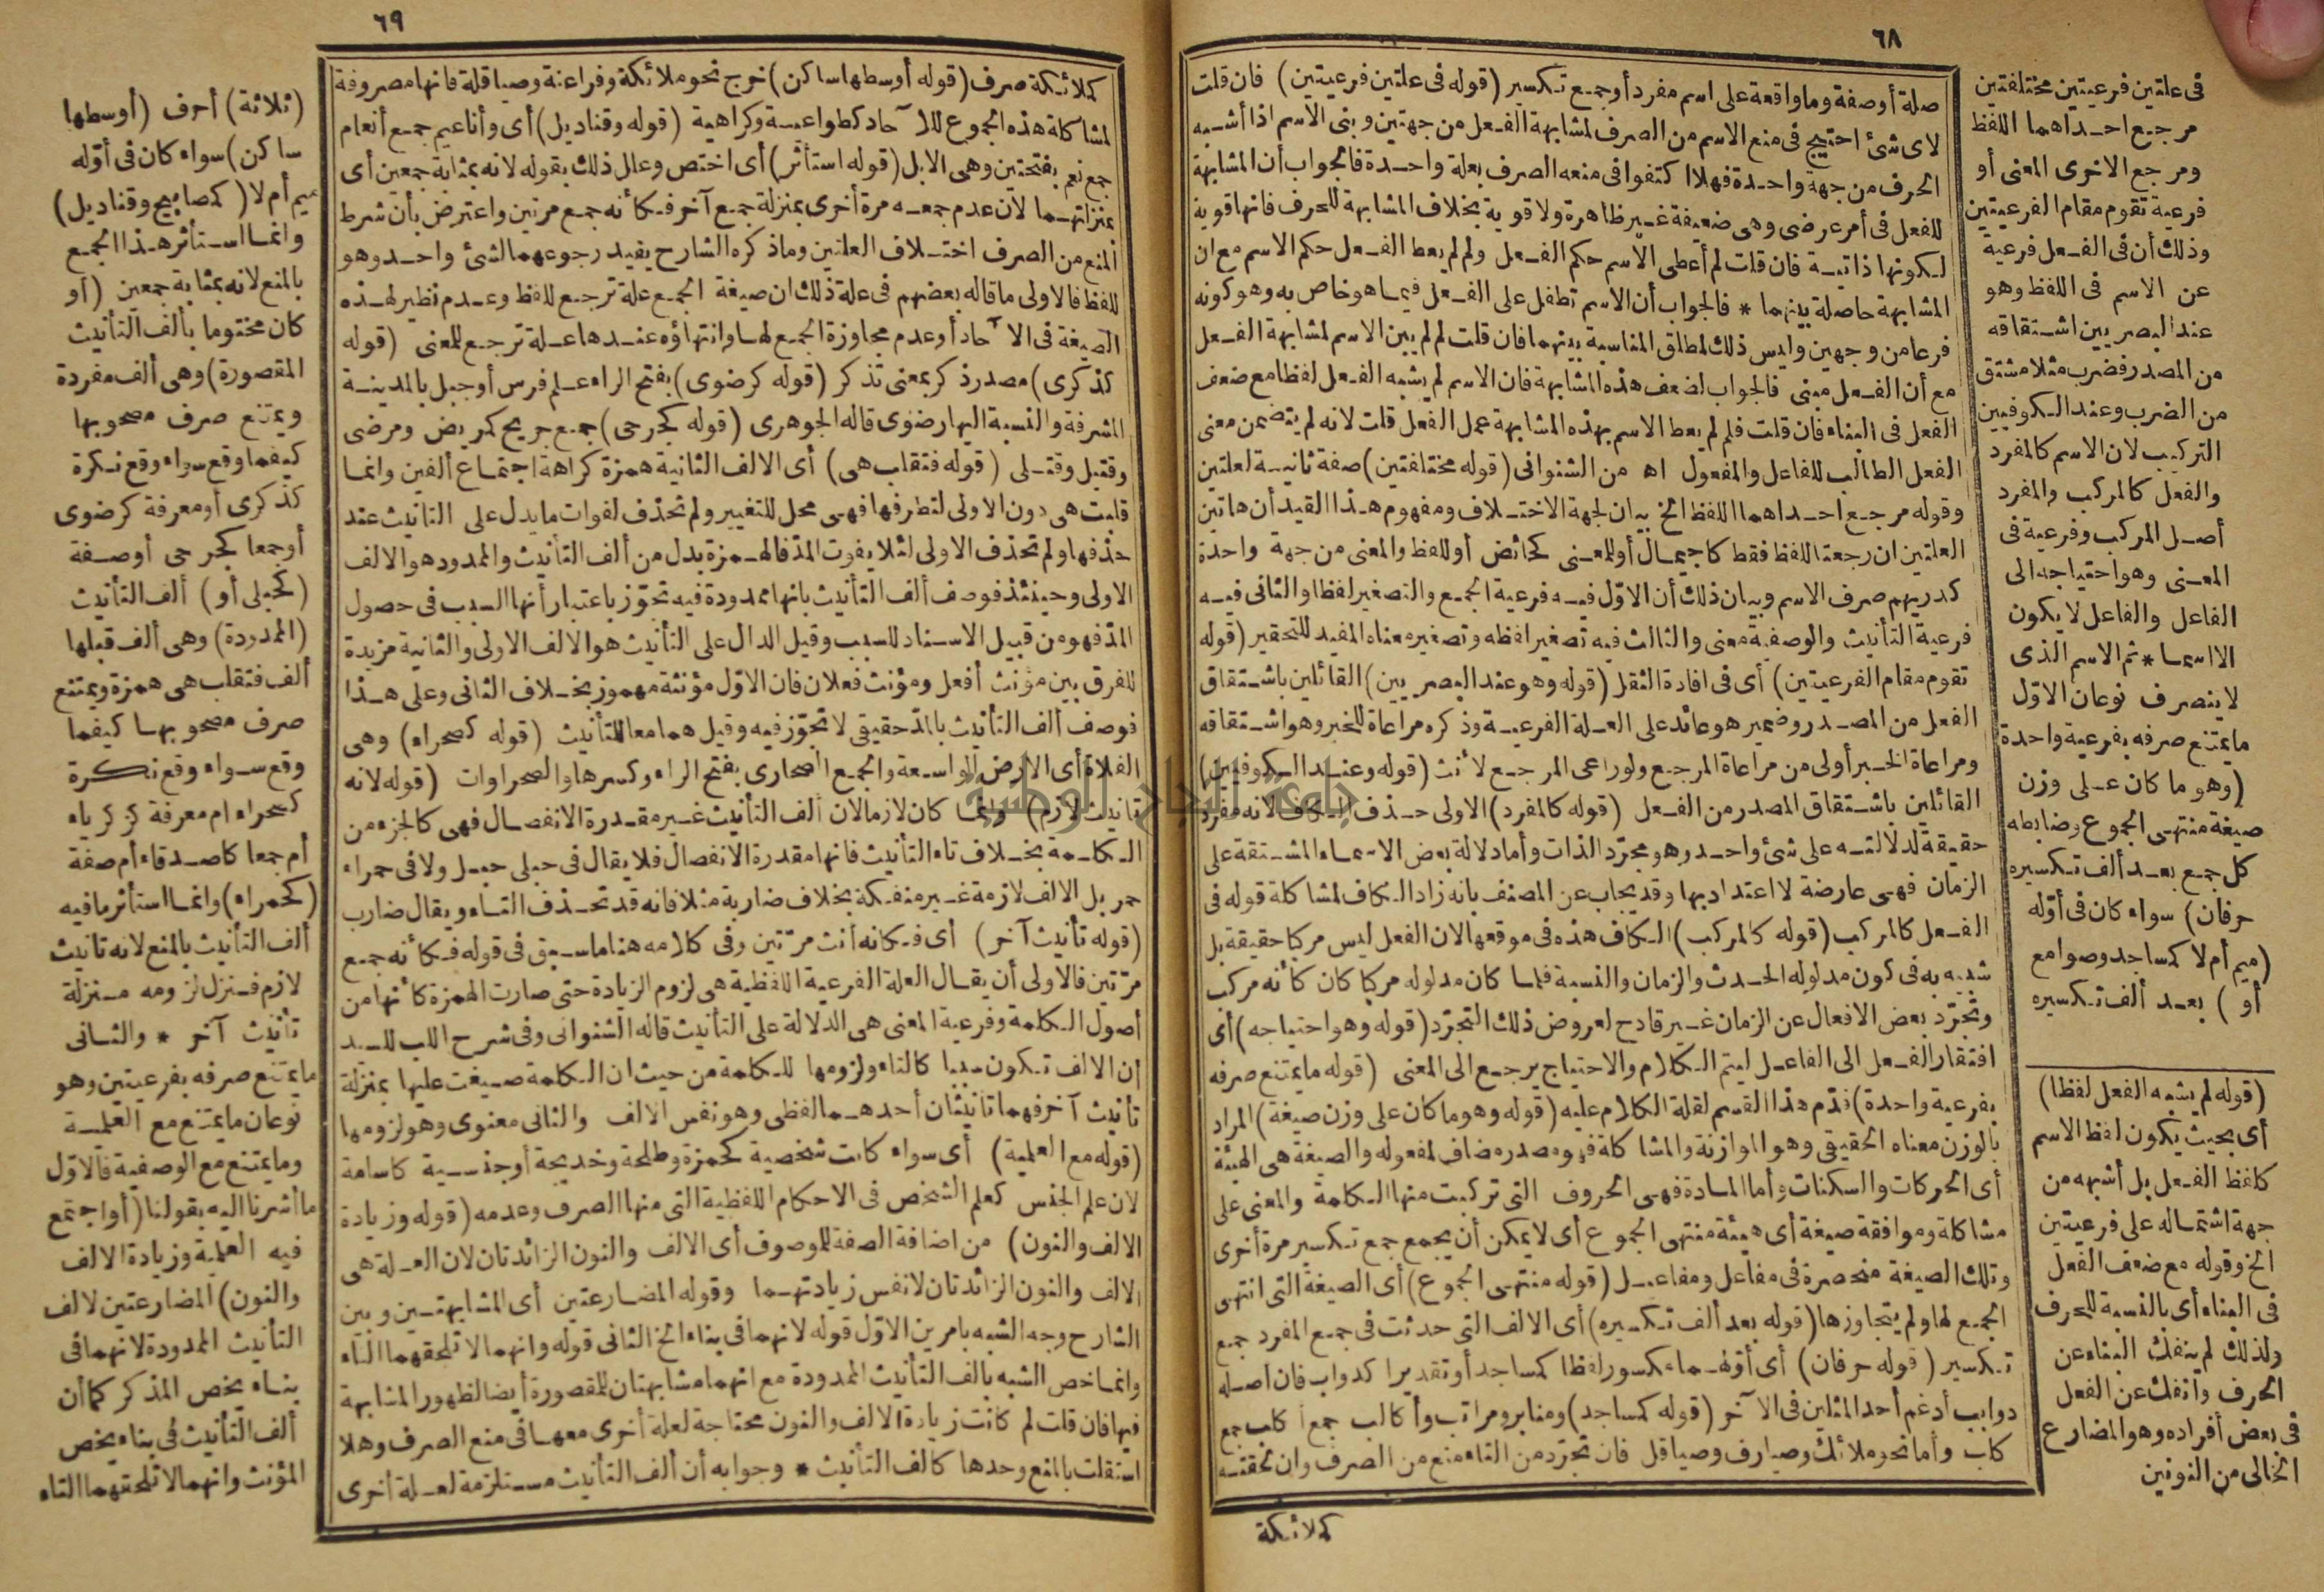 ٦٨
صلة أو صفة وما واقعة على اسم مفرد أو جمع تكسير (قوله فى علتين فرعيتين) فان قلت
لاى شئ احتيج فى منع الاسم من الصرف لمشابهة الفعل من جهتين وبنى الاسم اذا أشبه
الحرف من جهة واحدة فهلا اكتفوا فى منعه الصرف بعلة واحدة فالجواب أن المشابهة
للفعل فى أمر عرضى وهى ضعيفة غير ظاهرة ولا قوية بخلاف المشابهة للحرف فانها قوية
لكونها ذاتية فان قلت لم أعطى الاسم حكم الفعل ولم لم يعط الفعل حكم الاسم مع ان
المشابهة حاصلة بينهما * فالجواب أن الاسم تطفل على الفعل فيما هو خاص به وهو كونه
فرعا من وجهين وليس ذلك لمطلق المناسبة بينهما فان قلت لم لم يبن الاسم لمشابهة الفعل
مع أن الفعل مبنى فالجواب لضعف هذه المشابهة فان الاسم لم يشبه الفعل لفظا مع ضعف
الفعل فى البناء فان قلت فلم لم يعط الاسم بهذه المشابهة عمل الفعل قلت لانه لم يتضمن معنى
الفعل الطالب للفاعل والمفعول اه من الشنوانى (قوله مختلفتين) صفة ثانية لعلتين
وقوله مرجع احداهما اللفظ الخ بيان لجهة الاختلاف ومفهوم هذا القيد أن هاتين
العلتين ان رجعتا للفظ فقط كاجيمال أو للمعنى كحائض أو للفظ والمعنى من جهة واحدة
كدريهم صرف الاسم وبيان ذلك أن الاول فيه فرعية الجمع والتصغير لفظا والثانى فيه
فرعية التأنيث والوصفية معنى والثالث فيه تصغير لفظه وتصغير معناه المفيد للتحقير (قوله
تقوم مقام الفرعيتين) أى فى افادة الثقل (قوله وهو عند البصريين) القائلين باشتقاق
الفعل من المصدر وضمير هو عائد على العلة الفرعية وذكره مراعاة للخبر وهو اشتقاقه
ومراعاة الخبر أولى من مراعاة المرجع ولو راعى المرجع لأنث (قوله وعند الكوفيين)
القائلين باشتقاق المصدر من الفعل (قوله كالمفرد) الاولى حذف الكاف لانه مفرد
حقيقة لدلالته على شئ واحد وهو مجرّد الذات وأما دلالة بعض الاسماء المشتقة على
الزمان فهى عارضة لا اعتداد بها وقد يجاب عن المصنف بانه زاد الكاف لمشاكلة قوله فى
الفعل كالمركب (قوله كالمركب) الكاف هذه فى موقعها لان الفعل ليس مركبا حقيقة بل
شبيه به فى كون مدلوله الحدث والزمان والنسبة فلما كان مدلوله مركبا كان كأنه مركب
وتجرّد بعض الافعال عن الزمان غير قادح لعروض ذلك التجرّد (قوله وهو احتياجه) أى
افتقار الفعل الى الفاعل ليتم الكلام والاحتياج يرجع الى المعنى (قوله ما يمتنع صرفه
بفرعية واحدة) قدّم هذا القسم لقلة الكلام عليه (قوله وهو ما كان على وزن صيغة) المراد
بالوزن معناه الحقيقى وهو الموازنة والمشاكلة فهو مصدر مضاف لمفعوله والصيغة هى الهيئة
أى الحركات والسكنات وأما المادة فهى الحروف التى تركبت منها الكلمة والمعنى على
مشاكلة وموافقة صيغة أى هيئة منتهى الجموع أى لا يمكن أن يجمع جمع تكسير مرة أخرى
وتلك الصيغة منحصرة فى مفاعل ومفاعيل (قوله منتهى الجموع) أى الصيغة التى انتهى
الجمع لها ولم يتجاوزها (قوله بعد ألف تكسيره) أى الالف التى حدثت فى جمع المفرد جمع
تكسير (قوله حرفان) أى أوّلهما مكسور لفظا كمساجد أو تقديرا كدواب فان أصله
دوابب أدغم أحد المثلين فى الآخر (قوله كمساجد) ومنابر ومراتب وأكالب جمع أكلب جمع
كلب وأما نحو ملائك وصيارف وصياقل فان تجرّد من التاء منع من الصرف وان لحقته
كملائكة
فى علتين فرعيتين مختلفتين
مرجع احداهما اللفظ
ومرجع الاخرى المعنى أو
فرعية تقوم مقام الفرعيتين
وذلك أن فى الفعل فرعية
عن الاسم فى اللفظ وهو
عند البصريين اشتقاقه
من المصدر فضرب مثلا مشتق
من الضرب وعند الكوفيين
التركيب لان الاسم كالمفرد
والفعل كالمركب والمفرد
أصل المركب وفرعية فى
المعنى وهو احتياجه الى
الفاعل والفاعل لا يكون
الا اسما * ثم الاسم الذى
لا ينصرف نوعان الاوّل
ما يمتنع صرفه بفرعية واحدة
(وهو ما كان على وزن
صيغة منتهى الجموع وضابطه
كل جمع بعد ألف تكسيره
حرفان) سواء كان فى أوّله
(ميم أم لا كمساجد وصوامع
أو) بعد ألف تكسيره
(قوله لم يشبه الفعل لفظا)
أى بحيث يكون لفظ الاسم
كلفظ الفعل بل أشبهه من
جهة اشتماله على فرعيتين
الخ وقوله مع ضعف الفعل
فى البناء أى بالنسبة للحرف
ولذلك لم ينفك البناء عن
الحرف وانفك عن الفعل
فى بعض أفراده وهو المضارع
الخالى من النونين
٦٩
كملائكة صرف (قوله أوسطها ساكن) خرج نحو ملائكة وفراعنة وصياقلة فانها مصروفة
لمشاكلة هذه الجموع للآحاد كطواعية وكراهية (قوله وقناديل) أى وأناعيم جمع أنعام
جمع نعم بفتحتين وهى الابل (قوله استأثر) أى اختص وعلل ذلك بقوله لانه بمثابة جمعين أى
بمنزلتهما لان عدم جمعه مرة أخرى بمنزلة جمع آخر فكأنه جمع مرتين واعترض بأن شرط
المنع من الصرف اختلاف العلتين وما ذكره الشارح يفيد رجوعهما لشئ واحد وهو
اللفظ فالاولى ما قاله بعضهم فى علة ذلك ان صيغة الجمع علة ترجع للفظ وعدم نظير لهذه
الصيغة فى الآحاد أو عدم مجاوزة الجمع لها وانتهاؤه عندها علة ترجع للمعنى (قوله
كذكرى) مصدر ذكر بمعنى تذكر (قوله كرضوى) بفتح الراء علم فرس أو جبل بالمدينة
المشرفة والنسبة اليها رضوى قاله الجوهرى (قوله كجرحى) جمع جريح كمريض ومرضى
وقتيل وقتلى (قوله فتقلب هى) أى الالف الثانية همزة كراهة اجتماع ألفين وانما
قلبت هى دون الاولى لتطرفها فهى محل للتغيير ولم تحذف لفوات ما يدل على التأنيث عند
حذفها ولم تحذف الاولى لئلا يفوت المدّ فالهمزة بدل من ألف التأنيث والممدود هو الالف
الاولى وحينئذ فوصف ألف التأنيث بانها ممدودة فيه تجوّز باعتبار أنها السبب فى حصول
المدّ فهو من قبيل الاسناد للسبب وقيل الدال على التأنيث هو الالف الاولى والثانية مزيدة
للفرق بين مؤنث أفعل ومؤنث فعلان فان الاوّل مؤنثه مهموز بخلاف الثانى وعلى هذا
فوصف ألف التأنيث بالمدّ حقيقى لا تجوّز فيه وقيل هما معا للتأنيث (قوله كصحراء) وهى
الفلاة أى الارض الواسعة والجمع الصحارى بفتح الراء وكسرها والصحراوات (قوله لانه
تأنيث لازم) وانما كان لازما لان ألف التأنيث غير مقدرة الانفصال فهى كالجزء من
الكلمة بخلاف تاء التأنيث فانها مقدرة الانفصال فلا يقال فى حبلى حبل ولا فى حمراء
حمر بل الالف لازمة غير منفكة بخلاف ضاربة مثلا فانه قد تحذف التاء ويقال ضارب
(قوله تأنيث آخر) أى فكانه أنث مرّتين وفى كلامه هنا ما سبق فى قوله فكأنه جمع
مرّتين فالاولى أن يقال العلة الفرعية اللفظية هى لزوم الزيادة حتى صارت الهمزة كأنها من
أصول الكلمة وفرعية المعنى هى الدلالة على التأنيث قاله الشنوانى وفى شرح اللب للسيد
أن الالف تكون سببا كالتاء ولزومها للكلمة من حيث ان الكلمة صيغت عليها بمنزلة
تأنيث آخر فهما تأنيثان أحدهما لفظى وهو نفس الالف والثانى معنوى وهو لزومها
(قوله مع العلمية) أى سواء كانت شخصية كحمزة وطلحة وخديجة أو جنسية كاسامة
لان علم الجنس كعلم الشخص فى الاحكام اللفظية التى منها الصرف وعدمه (قوله وزيادة
الالف والنون) من اضافة الصفة للموصوف أى الالف والنون الزائدتان لان العلة هى
الالف والنون الزائدتان لا نفس زيادتهما وقوله المضارعتين أى المشابهتين وبين
الشارح وجه الشبه بامرين الاوّل قوله لانهما فى بناء الخ الثانى قوله وانهما لا تلحقهما التاء
وانما خص الشبه بالف التأنيث الممدودة مع انهما مشابهتان للمقصورة أيضا لظهور المشابهة
فيها فان قلت لم كانت زيادة الالف والنون محتاجة لعلة أخرى معها فى منع الصرف وهلا
استقلت بالمنع وحدها كالف التأنيث * وجوابه أن ألف التأنيث مستلزمة لعلة أخرى
(ثلاثة) أحرف (أوسطها
ساكن) سواء كان فى أوّله
ميم أم لا (كمصابيح وقناديل)
وانما استأثر هذا الجمع
بالمنع لانه بمثابة جمعين (أو
كان مختوما بألف التأنيث
المقصورة) وهى ألف مفردة
ويمتنع صرف مصحوبها
كيفما وقع سواء وقع نكرة
كذكرى أو معرفة كرضوى
أو جمعا كجرحى أو صفة
(كحبلى أو) ألف التأنيث
(الممدودة) وهى ألف قبلها
ألف فتقلب هى همزة ويمتنع
صرف مصحوبها كيفما
وقع سواء وقع نكرة
كصحراء ام معرفة كزكرياء
أم جمعا كاصدقاء أم صفة
(كحمراء) وانما استأثر ما فيه
ألف التأنيث بالمنع لانه تأنيث
لازم فنزل لزومه منزلة
تأنيث آخر * والثانى
ما يمتنع صرفه بفرعيتين وهو
نوعان ما يمتنع مع العلمية
وما يمتنع مع الوصفية فالاوّل
ما أشرنا اليه بقولنا (أو اجتمع
فيه العلمية وزيادة الالف
والنون) المضارعتين لالف
التأنيث الممدودة لانهما فى
بناء يخص المذكر كما أن
ألف التأنيث فى بناء يخص
المؤنث وانهما لا تلحقهما التاء
جامعة النجاح الوطنية